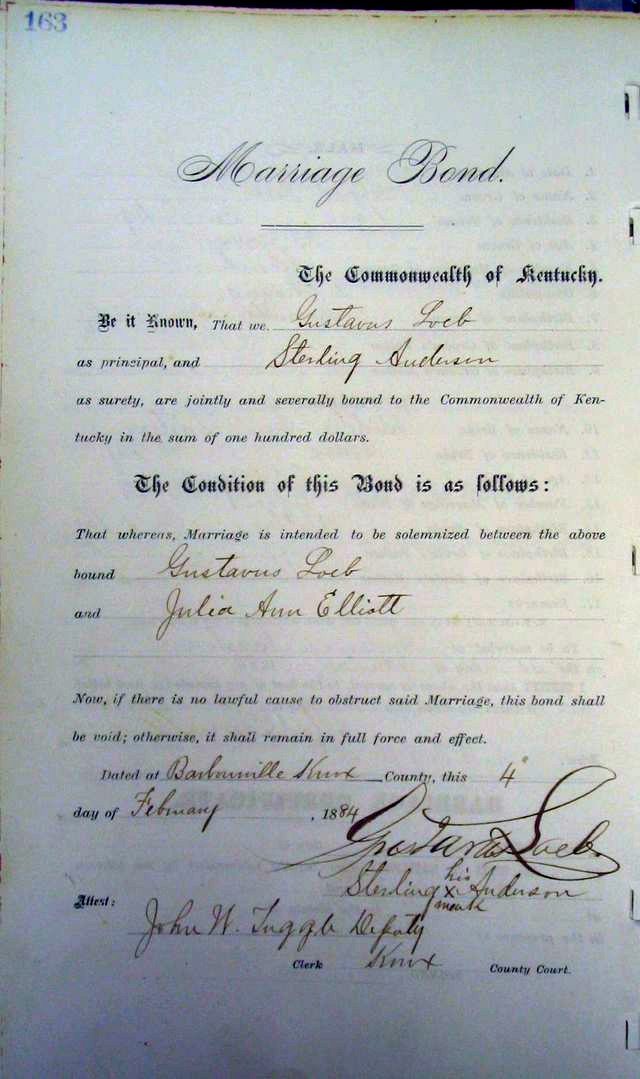 163
Marriage Bond.
The Commonwealth of Kentucky.
Be it Known, That we Gustavus Loeb
as principal, and Sterling Anderson
as surety, are jointly and severally bound to the Commonwealth of Ken-
tucky in the sum of one hundred dollars.
The Condition of this Bond is as follows:
That whereas, Marriage is intended to be solemnized between the above
bound Gustavus Loeb
and Julia Ann Elliott
Now, if there is no lawful cause to obstruct said Marriage, this bond shall
be void; otherwise, it shall remain in full force and effect.
Dated at Barbourville Knox County, this 4"
day of February, 1884
Gustavus Loeb
his
Sterling x Anderson
mark
Attest:
John W. Tuggle Deputy
Clerk Knox County Court.